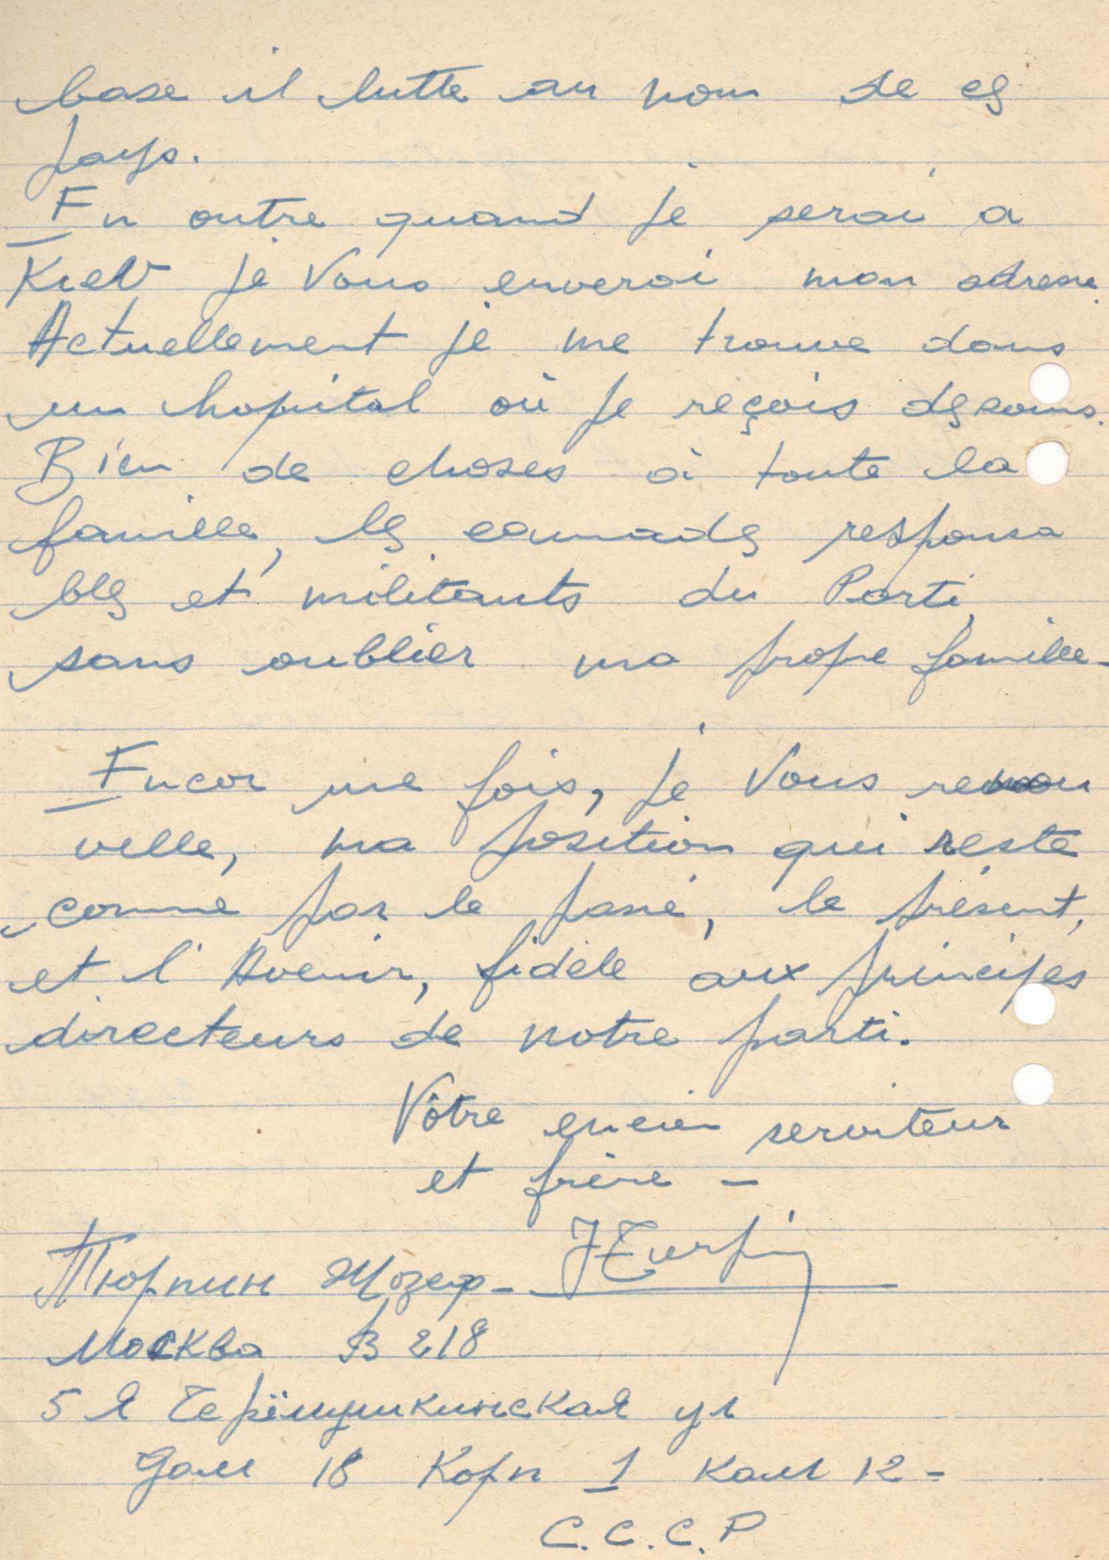 base il lutte au nom de ces
pays.
En outre quand je serai a
Kiev je Vous enverai mon adresse.
Actuellement je me trouve dans
un hopital où je reçois des soins.
Bien de choses à toute la
famille, les camades responsa
bles et militants du Parti,
sans oublier ma propre famille-
Encor une fois, je Vous renou
velle, ma position qui reste
comme par le passé, le présent,
et l'Avenir, fidèle aux principes
directeurs de notre parti.
Vôtre encien serviteur
et frère -
Тюрпин Жозеф- JTurpin
Москва В 218
5 Я Черёмушкинская ул
Дом 18 Корп 1 Ком 12-
С.С.С.Р